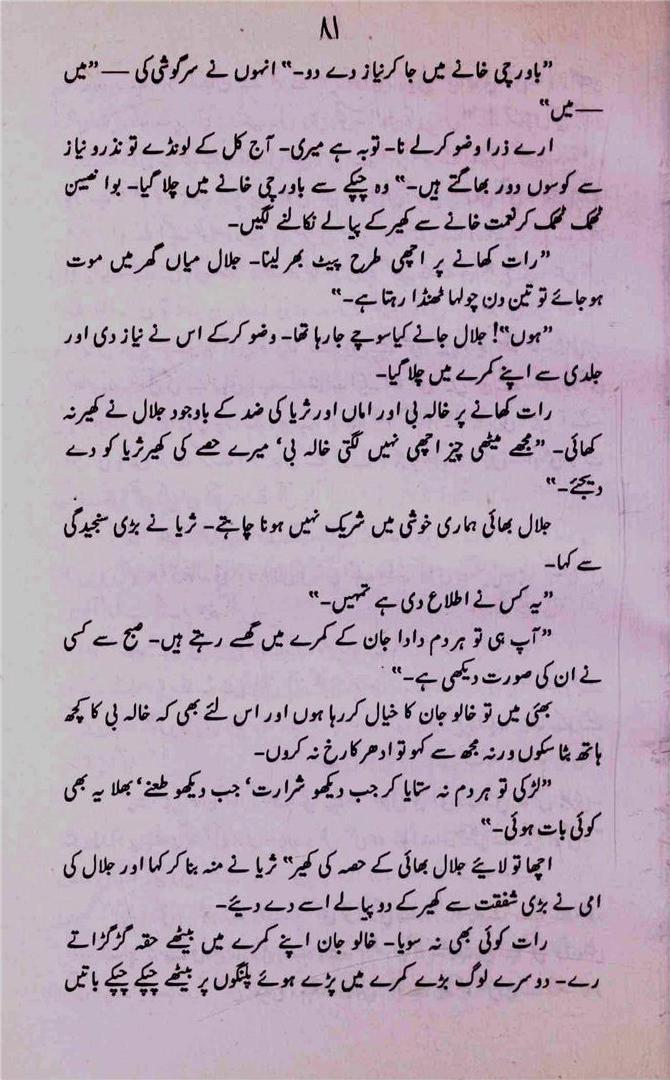 ۸۱
"باورچی خانے میں جا کر نیاز دے دو۔" انہوں نے سرگوشی کی — "میں
— میں"
ارے ذرا وضو کرلے نا۔ توبہ ہے میری۔ آج کل کے لونڈے تو نذر و نیاز
سے کوسوں دور بھاگتے ہیں۔" وہ چپکے سے باورچی خانے میں چلا گیا۔ بوا نصیبن
ٹھمک ٹھمک کر نعمت خانے سے کھیر کے پیالے نکالنے لگیں۔
"رات کھانے پر اچھی طرح پیٹ بھر لینا۔ جلال میاں گھر میں موت
ہوجائے تو تین دن چولہا ٹھنڈا رہتا ہے۔"
"ہوں"! جلال جانے کیا سوچے جارہا تھا۔ وضو کرکے اس نے نیاز دی اور
جلدی سے اپنے کمرے میں چلا گیا۔
رات کھانے پر خالہ بی اور اماں اور ثریا کی ضد کے باوجود جلال نے کھیر نہ
کھائی۔ "مجھے میٹھی چیز اچھی نہیں لگتی خالہ بی' میرے حصے کی کھیر ثریا کو دے
دیجئے۔"
جلال بھائی ہماری خوشی میں شریک نہیں ہونا چاہتے۔ ثریا نے بڑی سنجیدگی
سے کہا۔
"یہ کس نے اطلاع دی ہے تمہیں۔"
"آپ ہی تو ہر دم دادا جان کے کمرے میں گھسے رہتے ہیں۔ صبح سے کسی
نے ان کی صورت دیکھی ہے۔"
بھئی میں تو خالو جان کا خیال کررہا ہوں اور اس لئے بھی کہ خالہ بی کا کچھ
ہاتھ بٹا سکوں ورنہ مجھ سے کہو تو ادھر کا رخ نہ کروں۔
"لڑکی تو ہر دم نہ ستایا کر جب دیکھو شرارت' جب دیکھو طعنے' بھلا یہ بھی
کوئی بات ہوئی۔"
اچھا تو لایئے جلال بھائی کے حصہ کی کھیر" ثریا نے منہ بنا کر کہا اور جلال کی
امی نے بڑی شفقت سے کھیر کے دو پیالے اسے دے دیئے۔
رات کوئی بھی نہ سویا۔ خالو جان اپنے کمرے میں بیٹھے حقہ گڑگڑاتے
رہے۔ دوسرے لوگ بڑے کمرے میں پڑے ہوئے پلنگوں پر بیٹھے چپکے چپکے باتیں